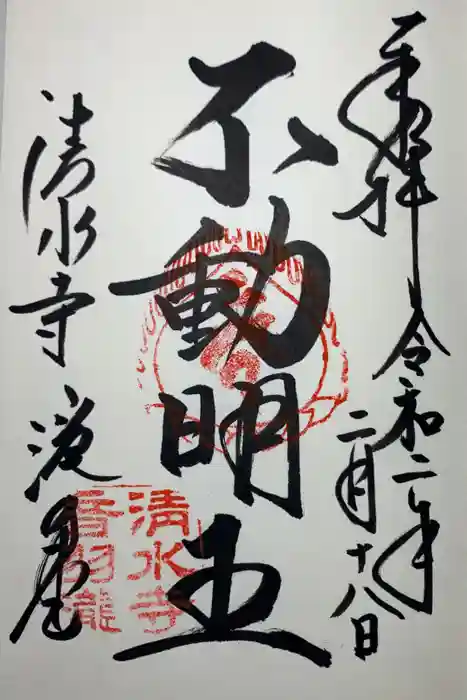 奉拝 令和二年
二月十八日
不動明王
清水寺 滝堂
清水寺
音羽瀧